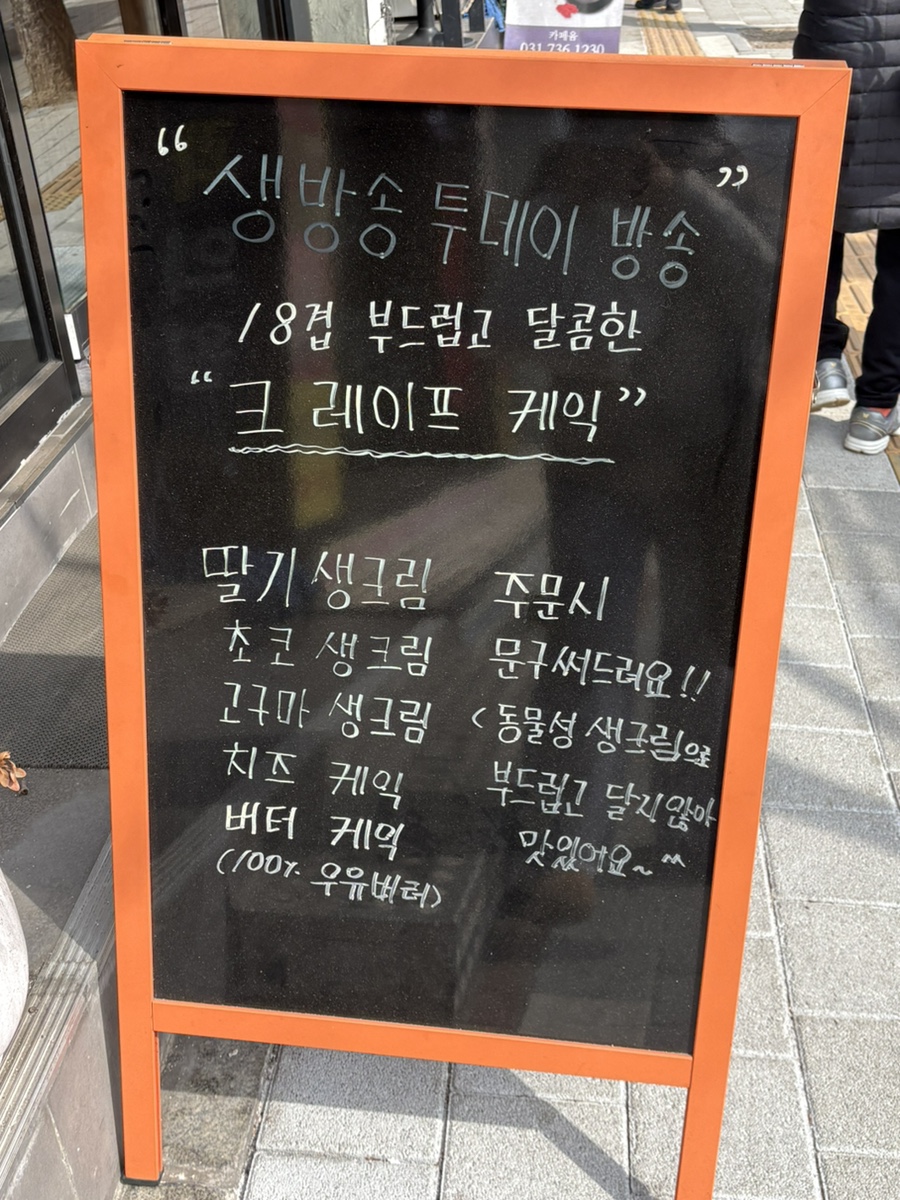 카페음
031 736 1230
“ 생방송 투데이 방송 ”
18겹 부드럽고 달콤한
“ 크레이프 케익 ”
딸기 생크림
초코 생크림
고구마 생크림
치즈 케익
버터 케익
(100% 우유버터)
주문시
문구써드려요!!
<동물성 생크림으로
부드럽고 달지않아
맛있어요~^^